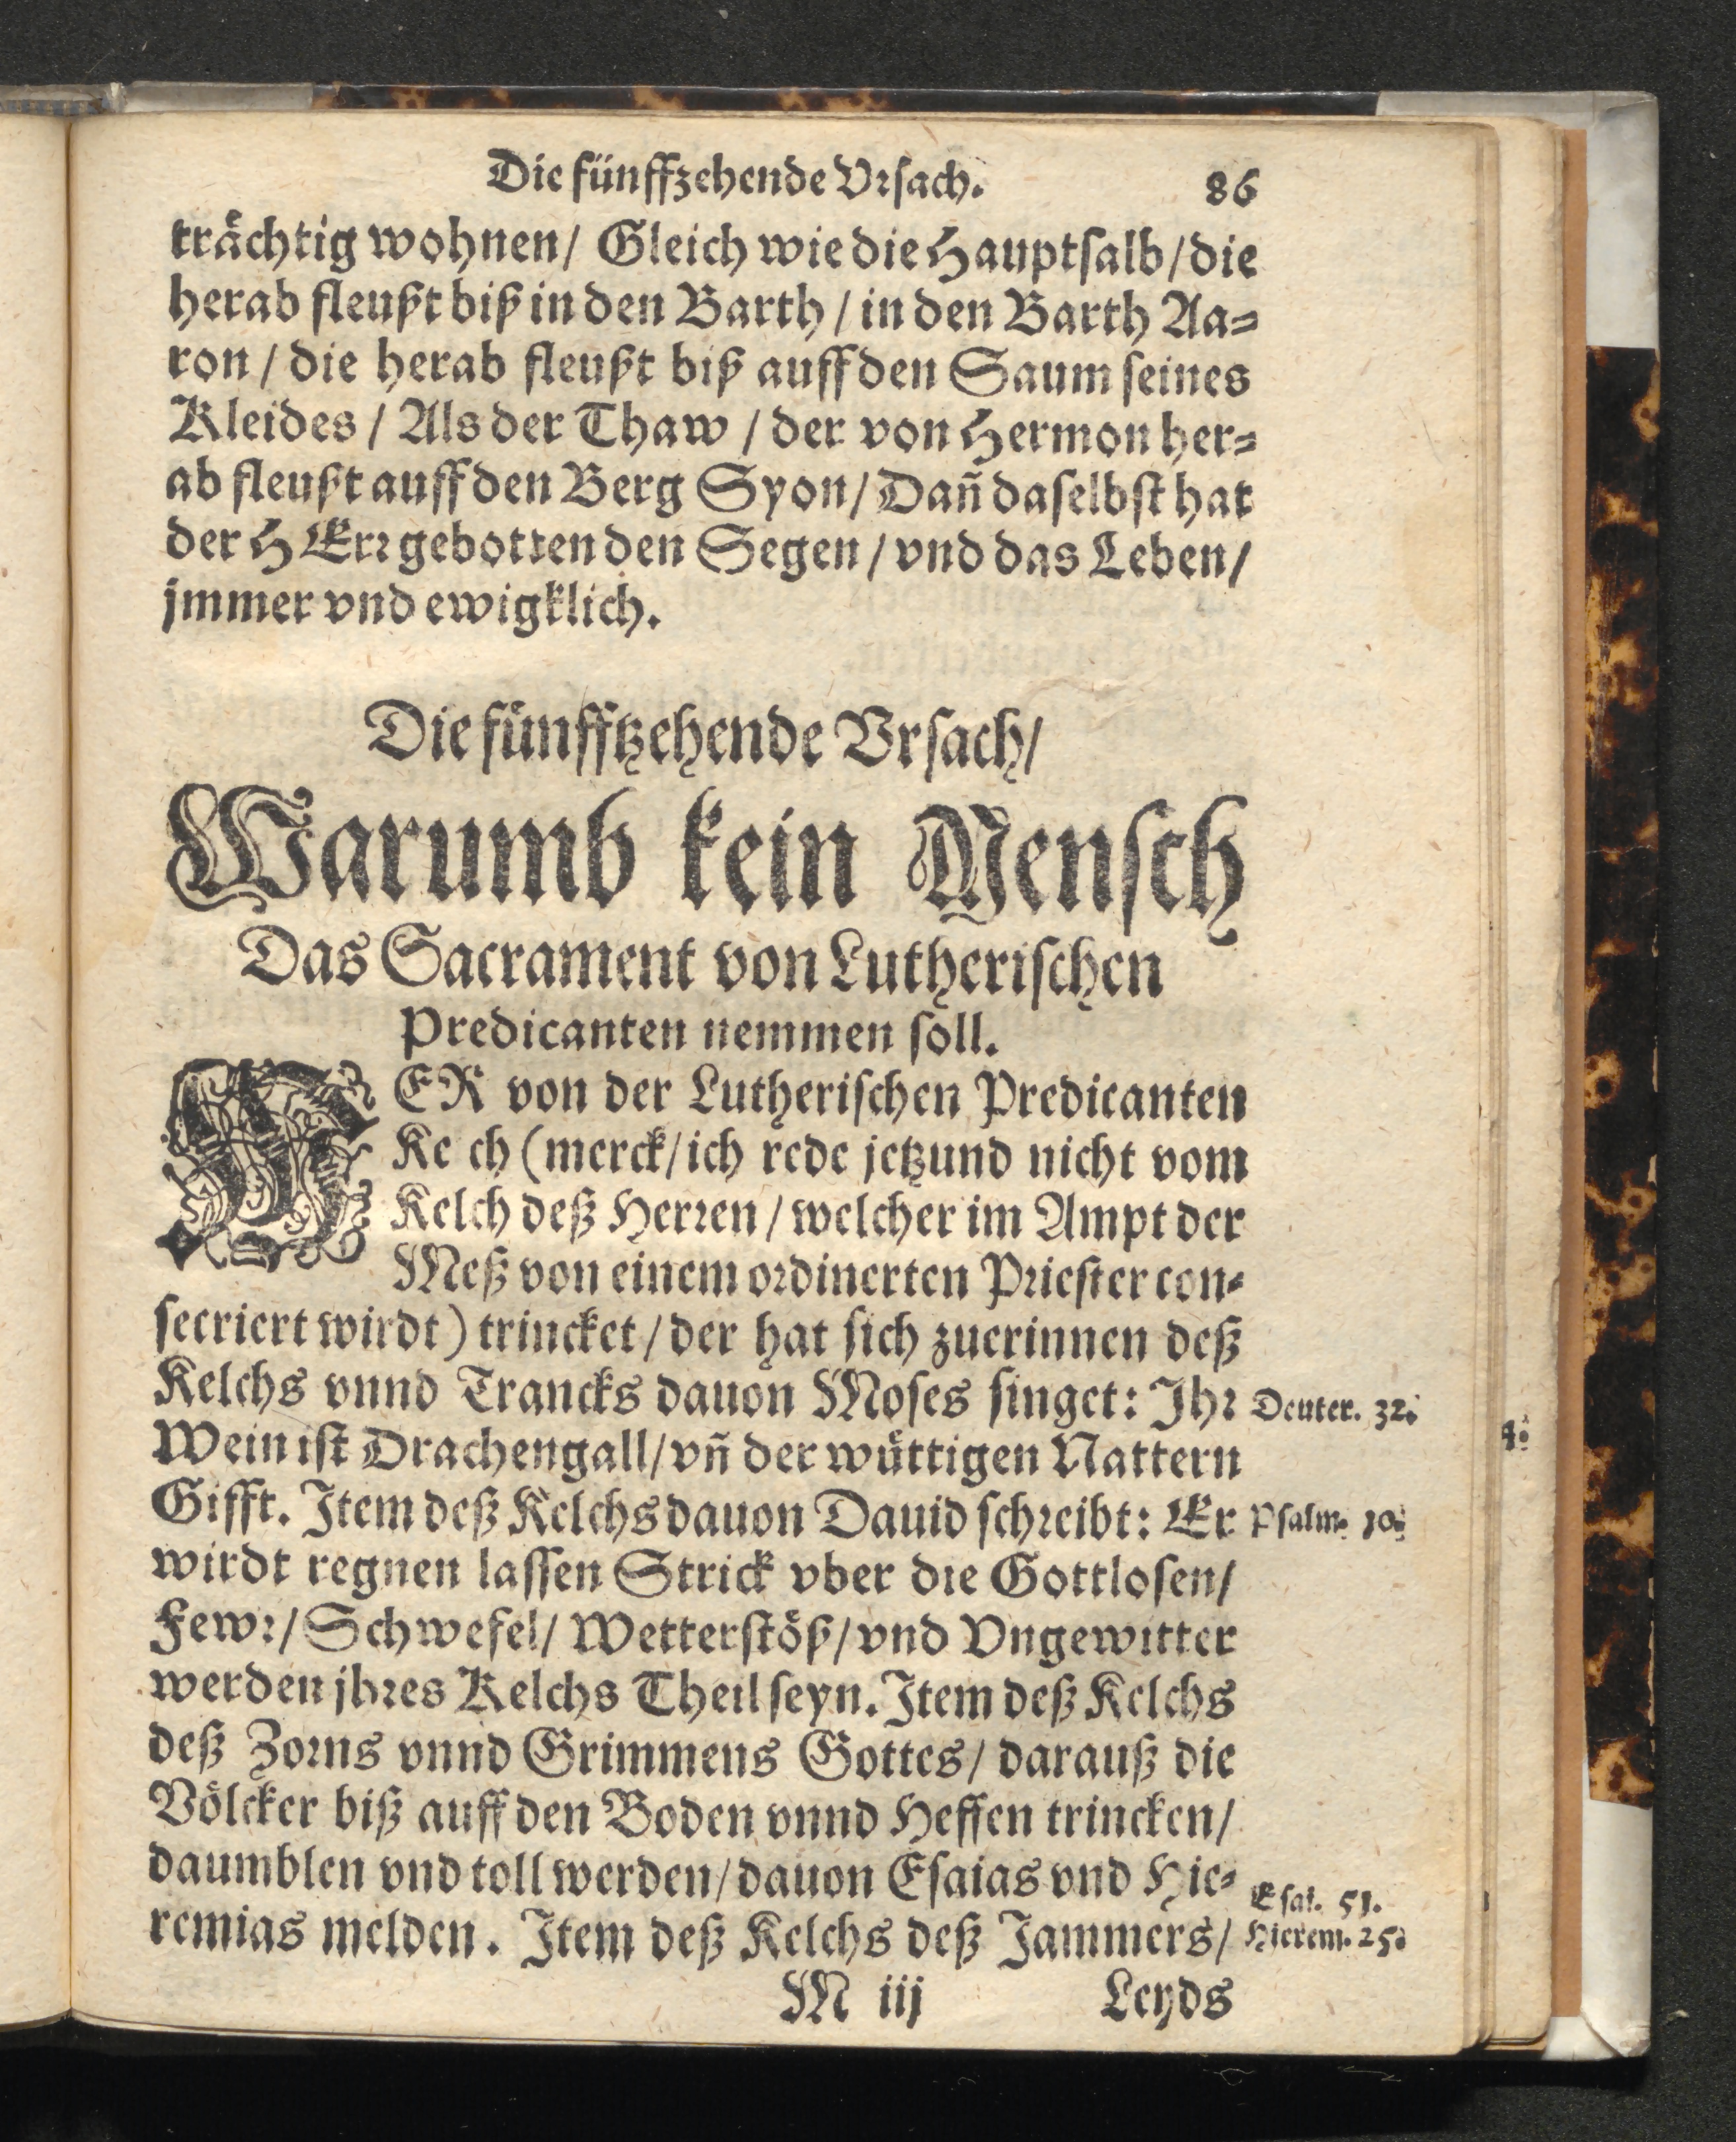 Die fünffzehende Vrsach. 86
trächtig wohnen/ Gleich wie die Hauptsalb/die
herab fleußt biß in den Barth / in den Barth Aa=
ron / die herab fleußt biß auff den Saum seines
Kleides / Als der Thaw / der von Hermon her=
ab fleußt auff den Berg Syon/ Dañ daselbst hat
der HErr gebotten den Segen / vnd das Leben/
jmmer vnd ewigklich.
Die fünfftzehende Vrsach/
Warumb kein Mensch
Das Sacrament von Lutherischen
Predicanten nemmen soll.
WER von der Lutherischen Predicanten
Ke ch (merck/ich rede jetzund nicht vom
Kelch deß Herren / welcher im Ampt der
Meß von einem ordinerten Priester con=
secriert wirdt) trincket / der hat sich zuerinnen deß
Kelchs vnnd Trancks dauon Moses singet: Ihr Deuter. 32.
Wein ist Drachengall/vñ der wüttigen Nattern
Gifft. Item deß Kelchs dauon Dauid schreibt: Er Psalm. 10.
wirdt regnen lassen Strick vber die Gottlosen/
Fewr/ Schwefel/ Wetterstöß/vnd Vngewitter
werden jhres Kelchs Theil seyn. Item deß Kelchs
deß Zorns vnnd Grimmens Gottes/ darauß die
Völcker biß auff den Boden vnnd Heffen trincken/
daumblen vnd toll werden/dauon Esaias vnd Hie= Esai. 51.
remias melden. Item deß Kelchs deß Jammers/ Hierem. 25.
M iij Leyds